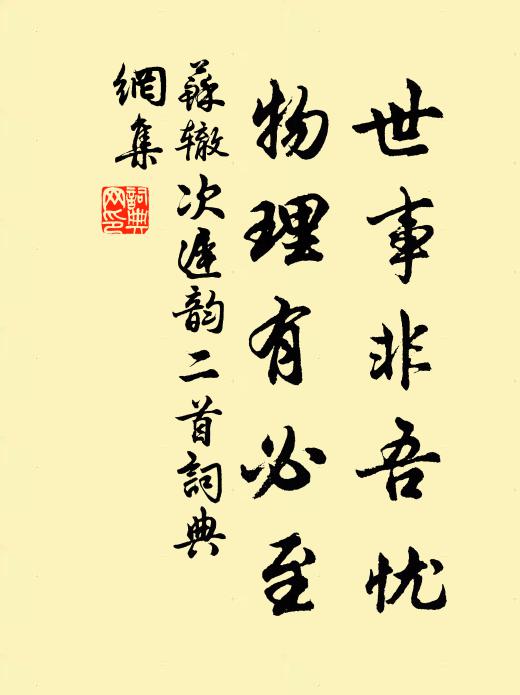 世事非吾忧
物理有必至
蘇辙次遲韵二首詞典
網集
詞典
网印